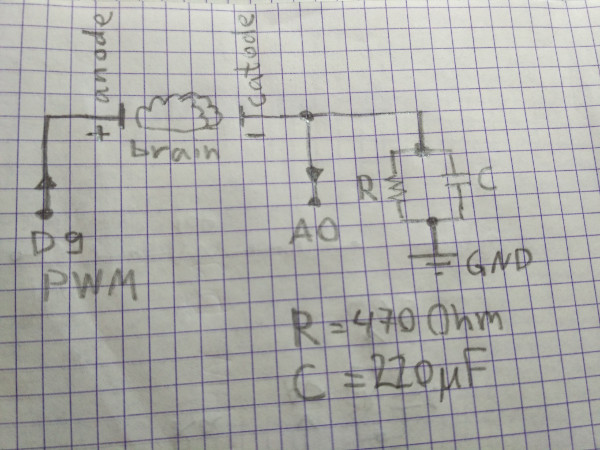 anode
catode
+
-
brain
R
C
D9
A0
PWM
GND
R = 470 Ohm
C = 220µF